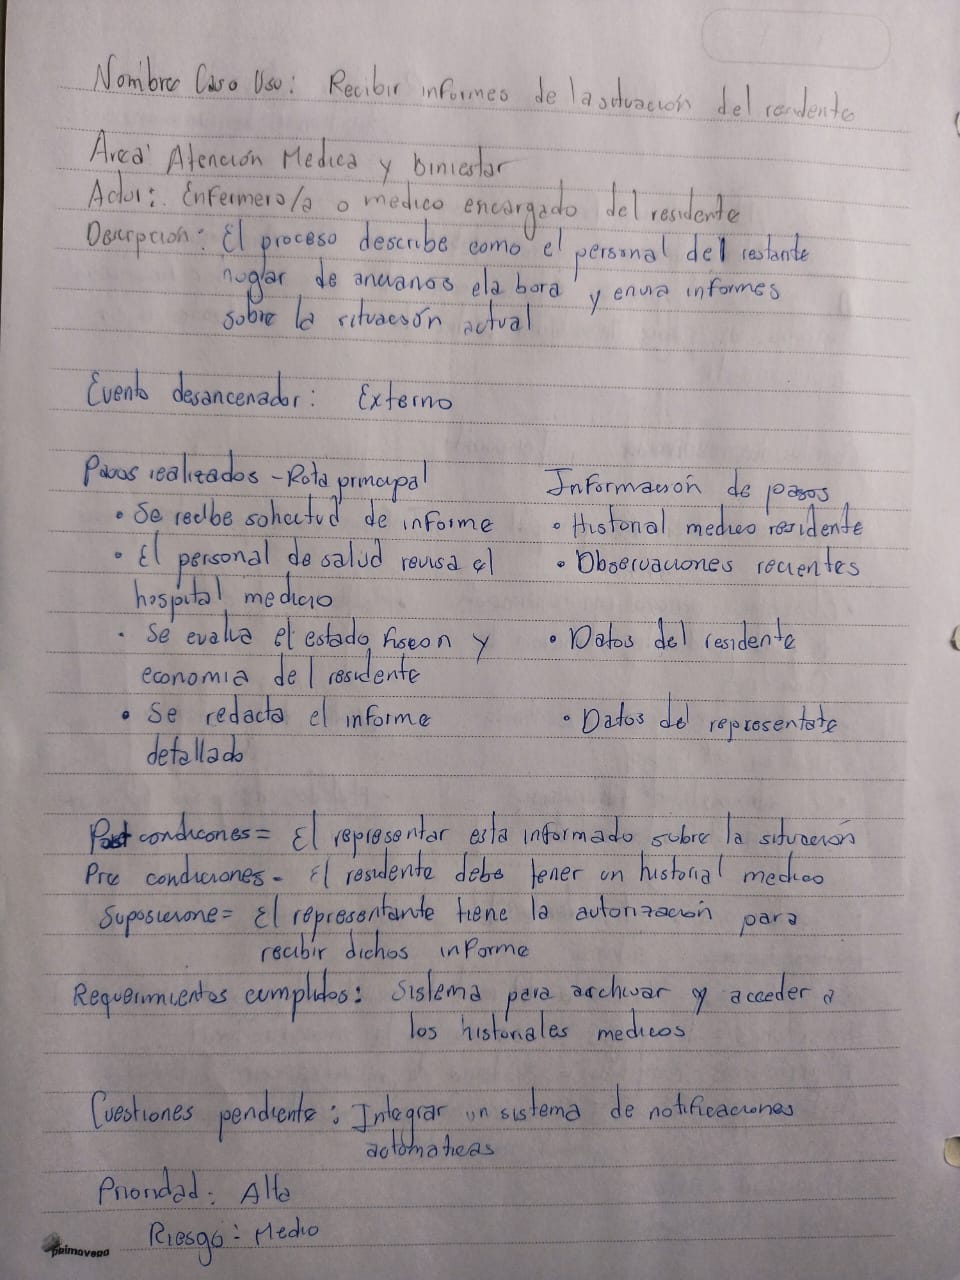 Nombre Caso Uso: Recibir informes de la situación del residente
Area: Atención Medica y biniestar
Actor: Enfermero/a o medico encargado del residente
Descripcion: El proceso describe como el personal del restante
hogar de ancianos ela bora y envia informes
sobre la situación actual
Evento desancenador: Externo
Pasos realizados - Rota principal
Información de pasos
• Se recibe solicitud de informe
• Historial medico residente
• El personal de salud revisa el
• Observaciones recientes
hospital medicio
• Se evalua el estado y
• Datos del residente
economia del residente
• Se redacta el informe
• Datos del representate
detallado
Post condicones = El representar esta informado sobre la situación
Pre condiciones - El residente debe tener un historial medico
Suposicione = El representante tiene la autorización para
recibir dichos informe
Requerimientos cumplidos: Sistema para archivar y acceder a
los historiales medicos
Cuestiones pendiente: Integrar un sistema de notificaciones
automaticas
Prioridad: Alta
Riesgo: Medio
primavera